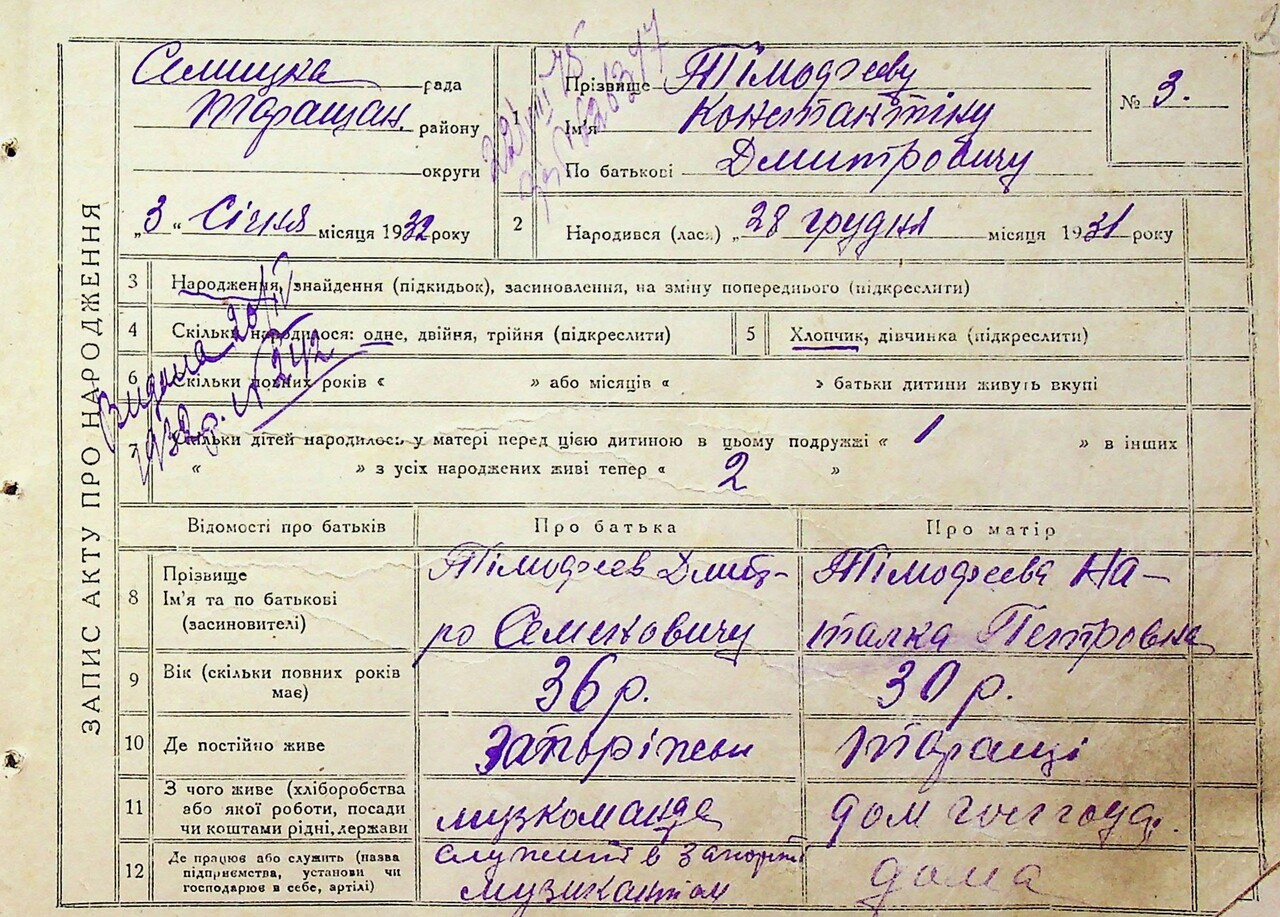 ЗАПИС АКТУ ПРО НАРОДЖЕННЯ
Селищна рада
Таращан. району
округи
„3“ Січня місяця 1932 року
1
Прізвище Тімофєєву
Ім'я Константіну
По батькові Дмитровичу
№ 3.
2
Народився (лась) „28 грудня місяця 1931 року
3 Народження, знайдення (підкидьок), засиновлення, на зміну попереднього (підкреслити)
4 Скільки народилося: одне, двійня, трійня (підкреслити)
5 Хлопчик, дівчинка (підкреслити)
6 Скільки повних років « » або місяців « » батьки дитини живуть вкупі
Видана 20/IV
1932 р. №242
7 Скільки дітей народилось у матері перед цією дитиною в цьому подружжі « 1 » в інших
« » з усіх народжених живі тепер « 2 »
Відомості про батьків
Про батька
Про матір
8
Прізвище
Ім'я та по батькові
(засиновителі)
Тімофєєв Дмит-
ро Семеновичу
Тімофєєва На-
талка Петровна
9 Вік (скільки повних років
має)
36 р.
30 р.
10 Де постійно живе
Запоріжжи
Таращі
11
З чого живе (хліборобства
або якої роботи, посади
чи коштами рідні, держави
музкоманда
дом
12
Де працює або служить (назва
підприємства, установи чи
господарює в себе, артілі)
служит в Запоріж
музикантом
дома